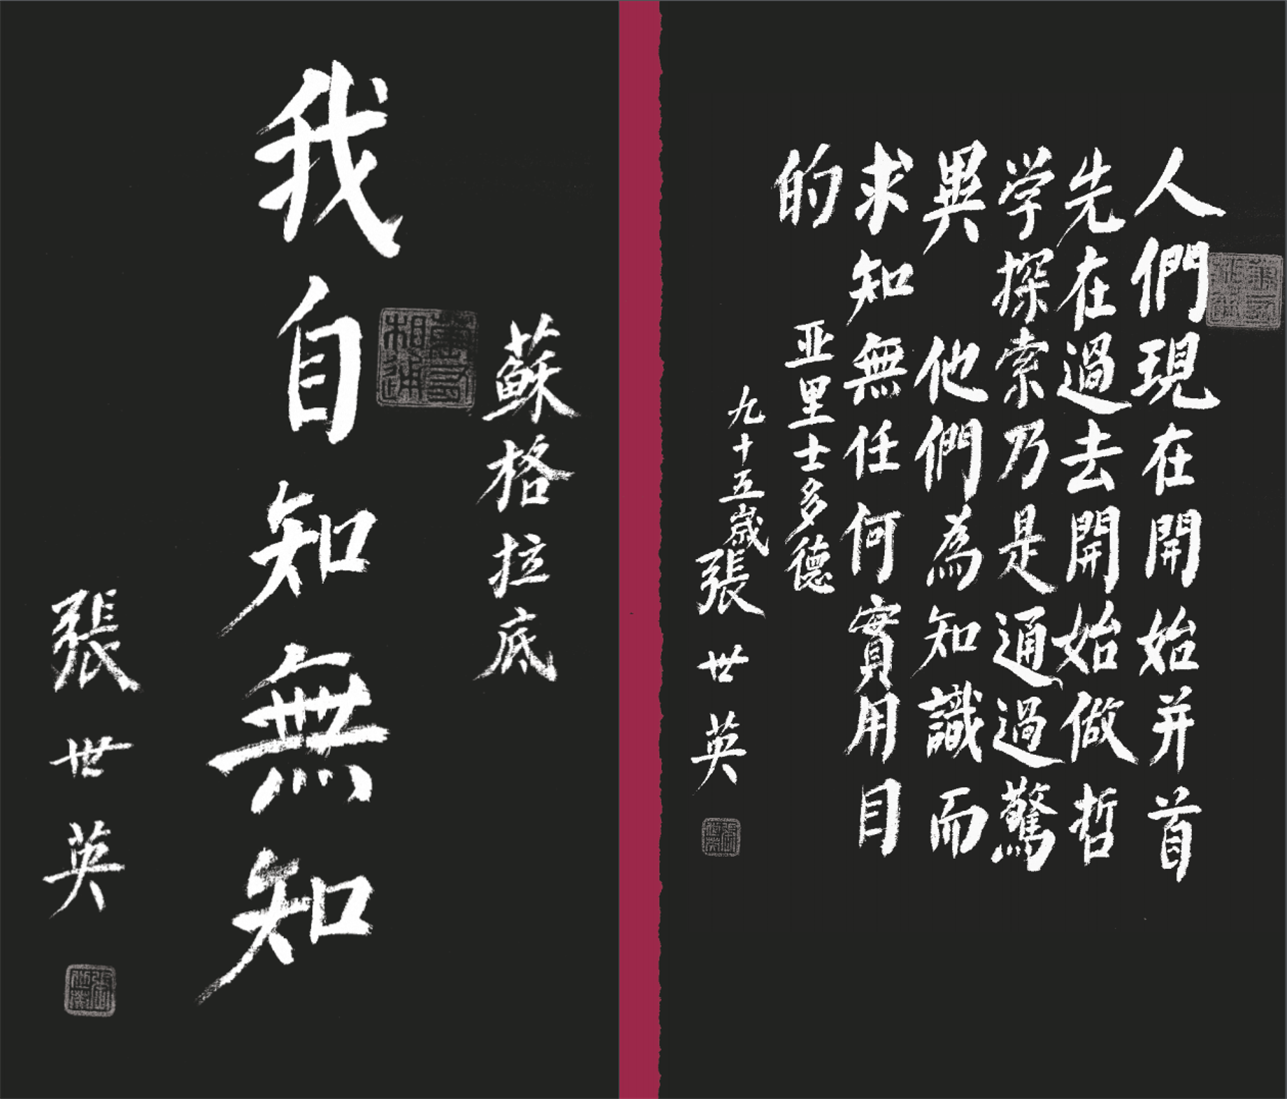 人們現在開始并首
先在過去開始做哲
学探索乃是通過驚
異 他們為知識而
求知無任何實用目
的
亚里士多德
九十五歲張世英
蘇格拉底
萬有相通
我自知無知
張世英